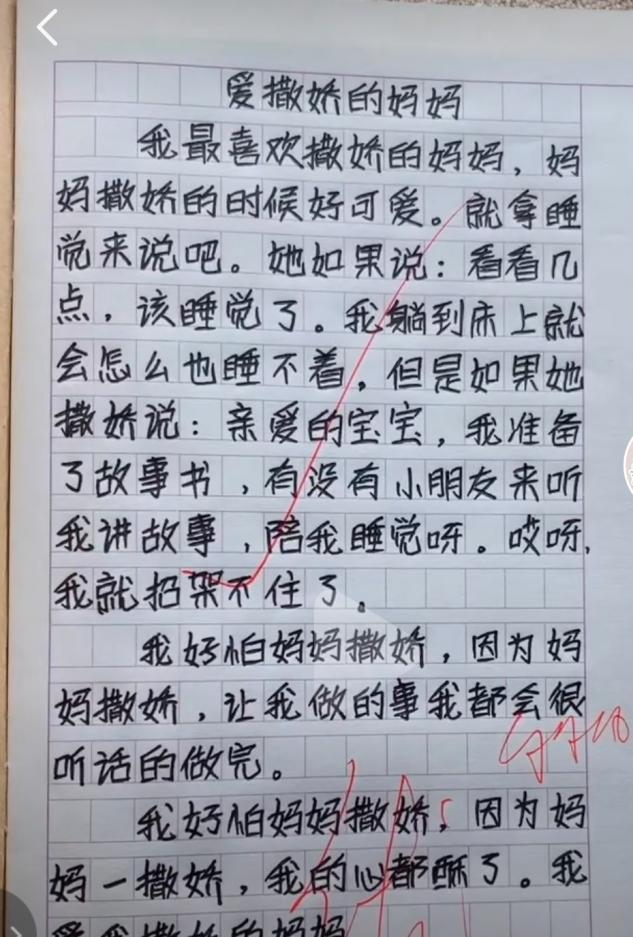 爱撒娇的妈妈
我最喜欢撒娇的妈妈，妈
妈撒娇的时候好可爱。就拿睡
觉来说吧。她如果说：看看几
点，该睡觉了。我躺到床上就
会怎么也睡不着，但是如果她
撒娇说：亲爱的宝宝，我准备
了故事书，有没有小朋友来听
我讲故事，陪我睡觉呀。哎呀，
我就招架不住了。
我好怕妈妈撒娇，因为妈
妈撒娇，让我做的事我都会很
听话的做完。
我好怕妈妈撒娇，因为妈
妈一撒娇，我的心都酥了。我
爱我撒娇的妈妈